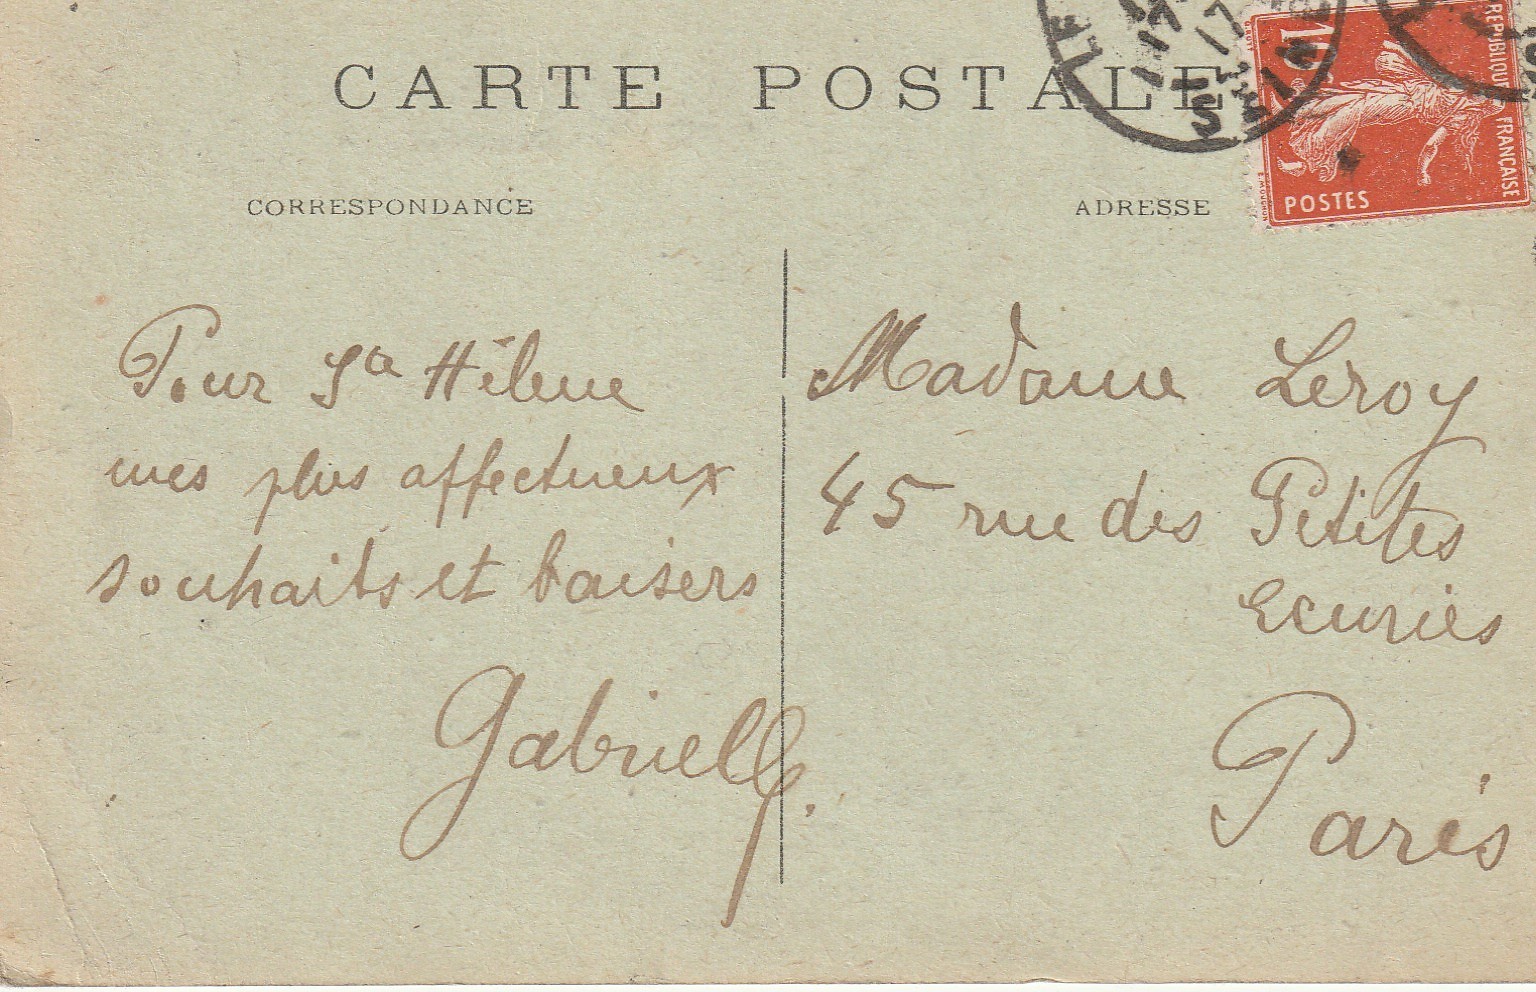 CARTE POSTALE
CORRESPONDANCE
ADRESSE
REPUBLIQUE FRANÇAISE
POSTES
Pour Sta Hélène
mes plus affectueux
souhaits et baisers
Gabrielle.
Madame Leroy
45 rue des Petites
Ecuries
Paris